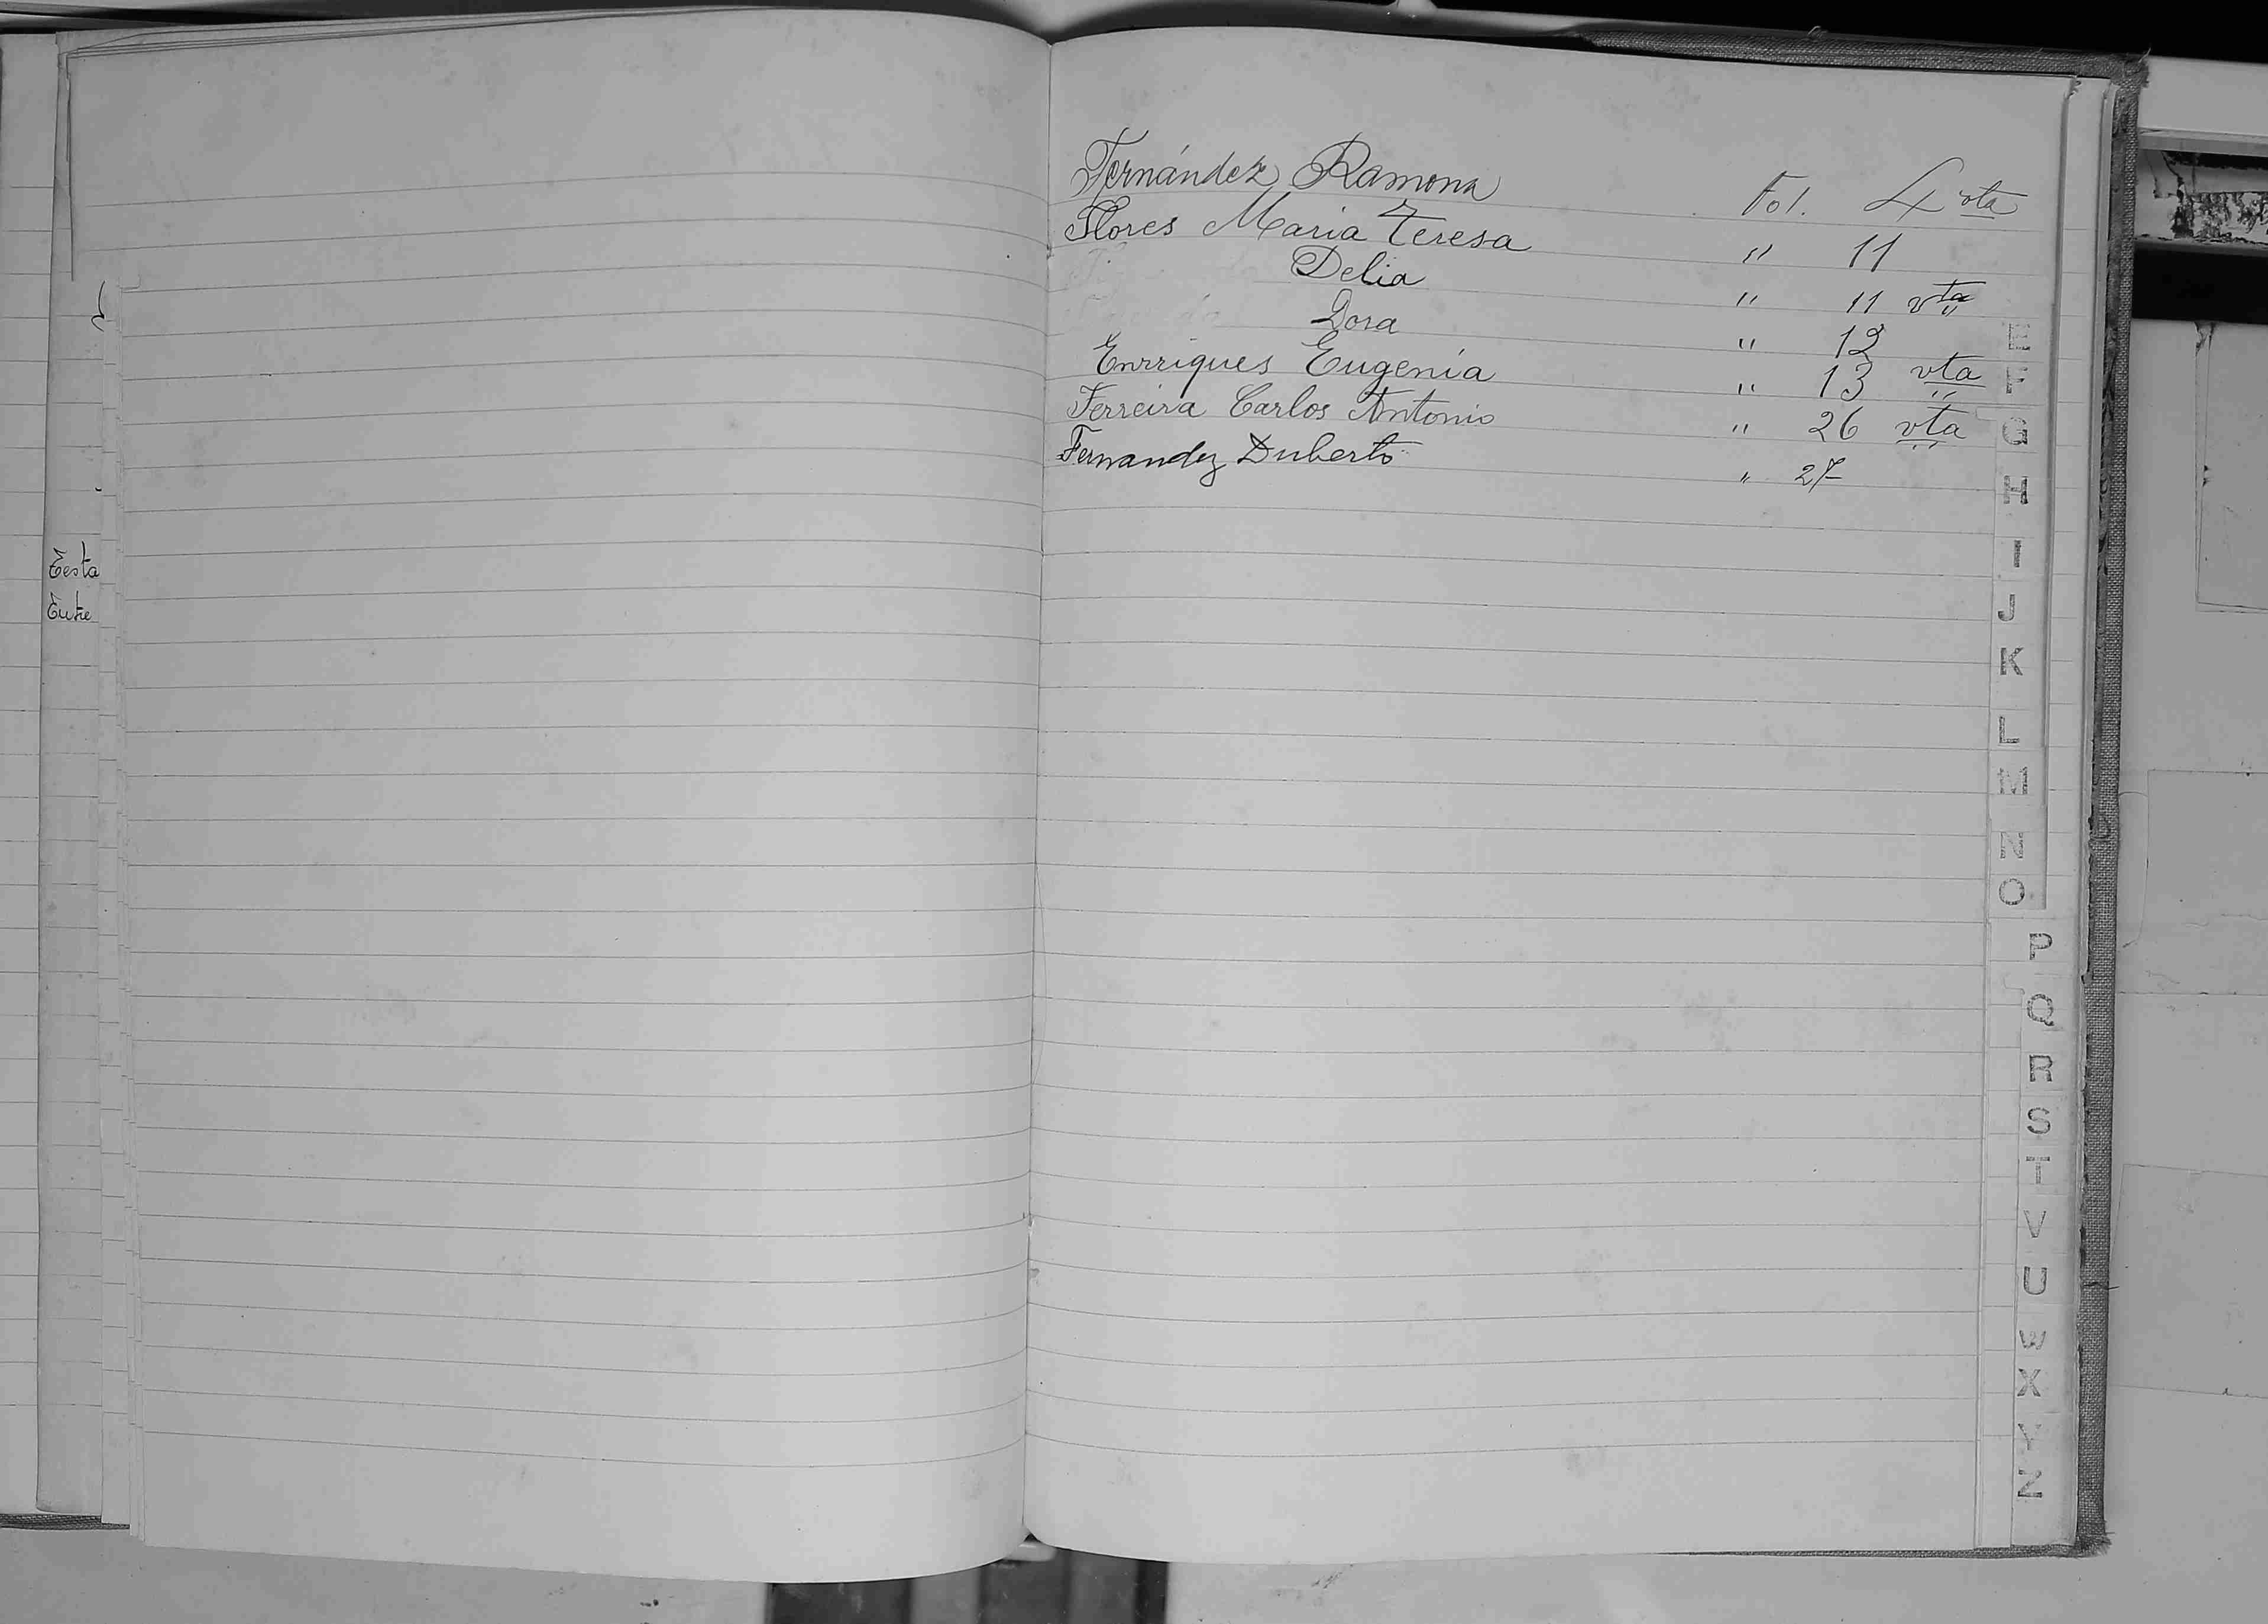 Eesta
Eutre
Fernández Ramona Fol. 4 vta
Flores Maria Teresa " 11
Delia " 11 vta
Dora " 12
Enrriques Eugenia " 13 vta
Ferreira Carlos Antonio " 26 vta
Fernandez Duberto " 27
E
F
G
H
I
J
K
L
M
N
O
P
Q
R
S
T
V
U
W
X
Y
Z